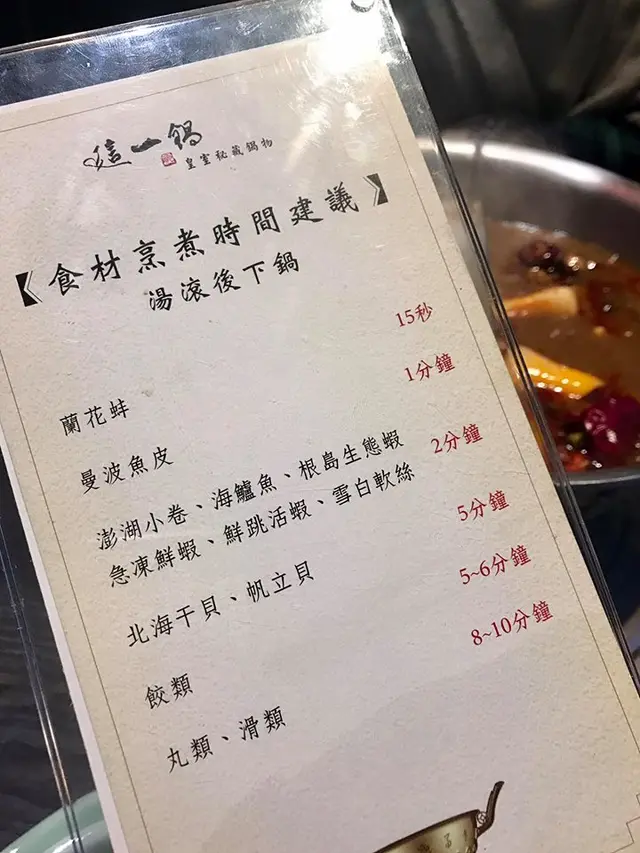 這一鍋
皇室秘藏鍋物
【食材烹煮時間建議】
湯滾後下鍋
蘭花蚌 15秒
曼波魚皮 1分鐘
澎湖小卷、海鱺魚、根島生態蝦 2分鐘
急凍鮮蝦、鮮跳活蝦、雪白軟絲
北海干貝、帆立貝 5分鐘
餃類 5~6分鐘
丸類、滑類 8~10分鐘